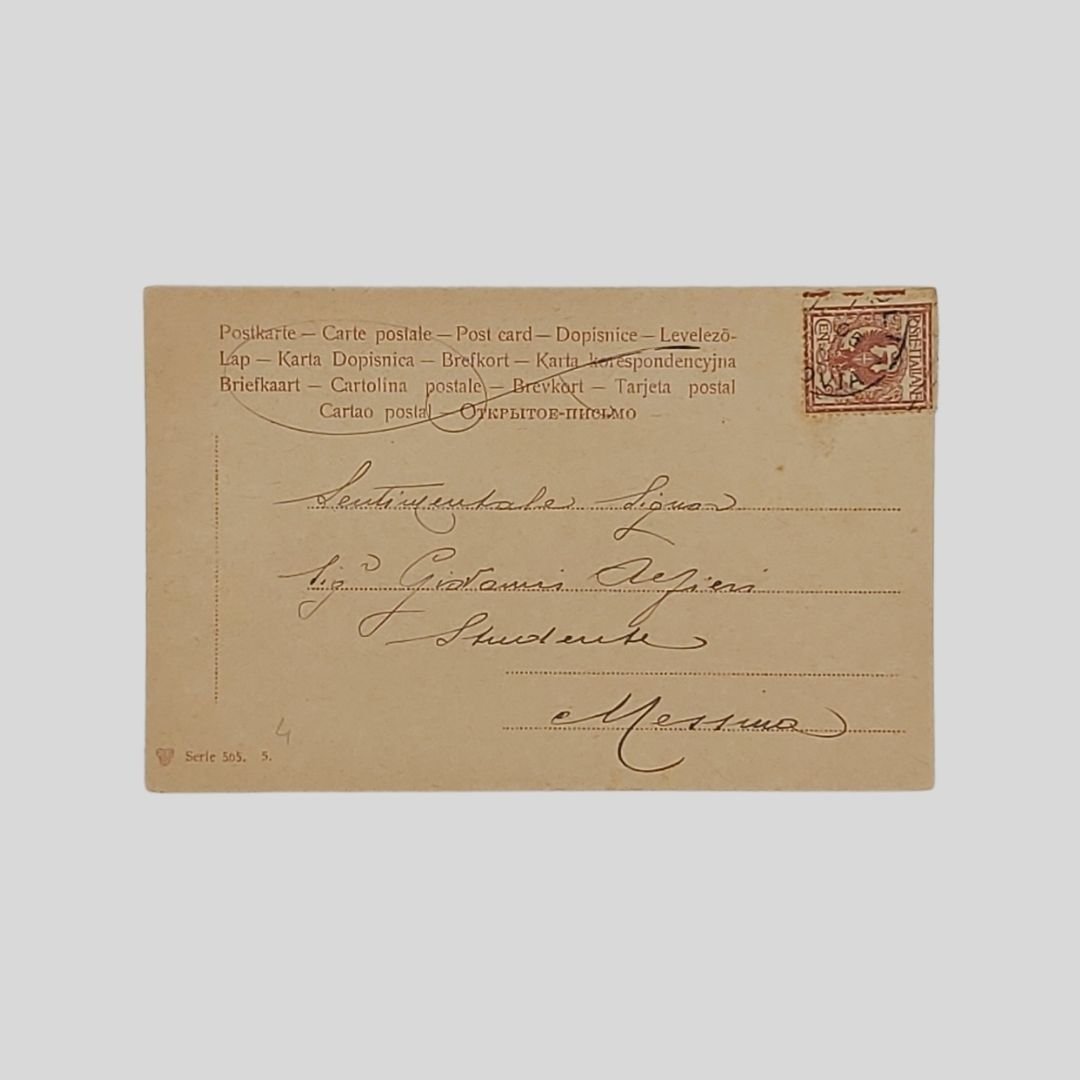 Postkarte — Carte postale — Post card — Dopisnice — Levelező-
Lap — Karta Dopisnica — Brefkort — Karta korespondencyjna
Briefkaart — Cartolina postale — Brevkort — Tarjeta postal
Cartao postal — Открытое-письмо
POSTE ITALIANE
CEN. 2
Sentimentale Signor
Sigr Giovanni Alfieri
Studente
Messina
4
Serie 565. 5.